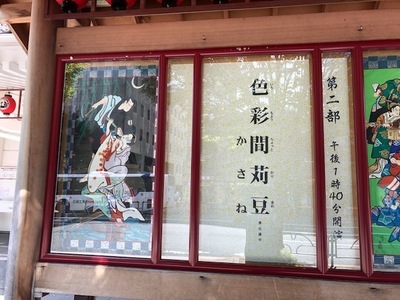 第二部
午後1時40分開演
色彩間苅豆
かさね